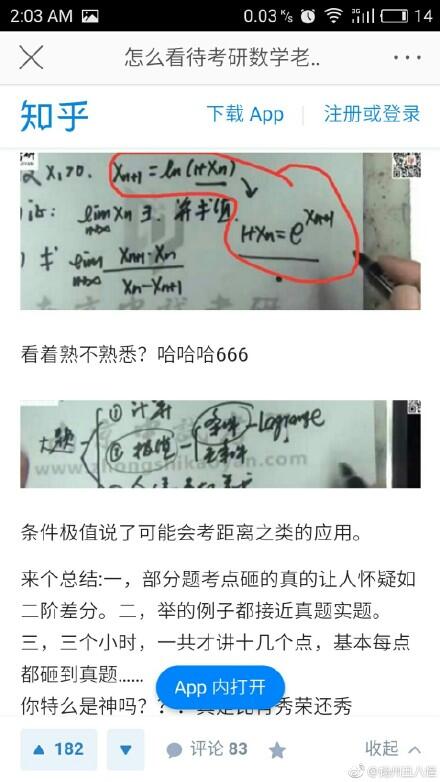 2:03 AM
0.03 K/s
3G
14
怎么看待考研数学老..
知乎
下载 App
注册或登录
X₁>0. Xn+1 = ln(1+Xn)
lim Xn ∃. 并求值.
n→∞
1+Xn = e^Xn+1
求 lim
n→∞
Xn+1-Xn
Xn-Xn+1
看着熟不熟悉？哈哈哈666
① 计算
大题
② 极值
条件
-Lagrange
无条件
www.zhongshikaoyan.com
条件极值说了可能会考距离之类的应用。
来个总结:一，部分题考点砸的真的让人怀疑如
二阶差分。二，举的例子都接近真题实题。
三，三个小时，一共才讲十几个点，基本每点
都砸到真题......
App 内打开
你特么是神吗？？
秀荣还秀
182
评论 83
收起